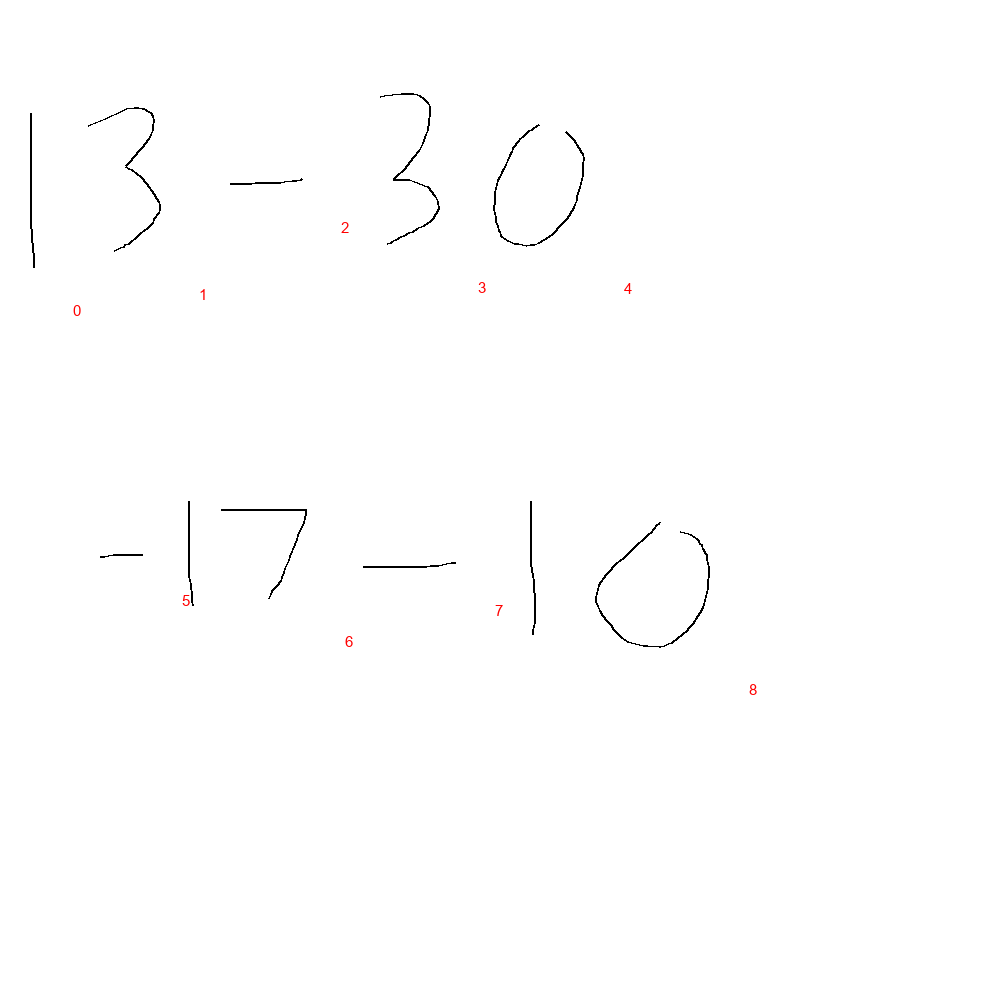 13 - 30
0 1 2 3 4
-17 - 10
5 6 7 8